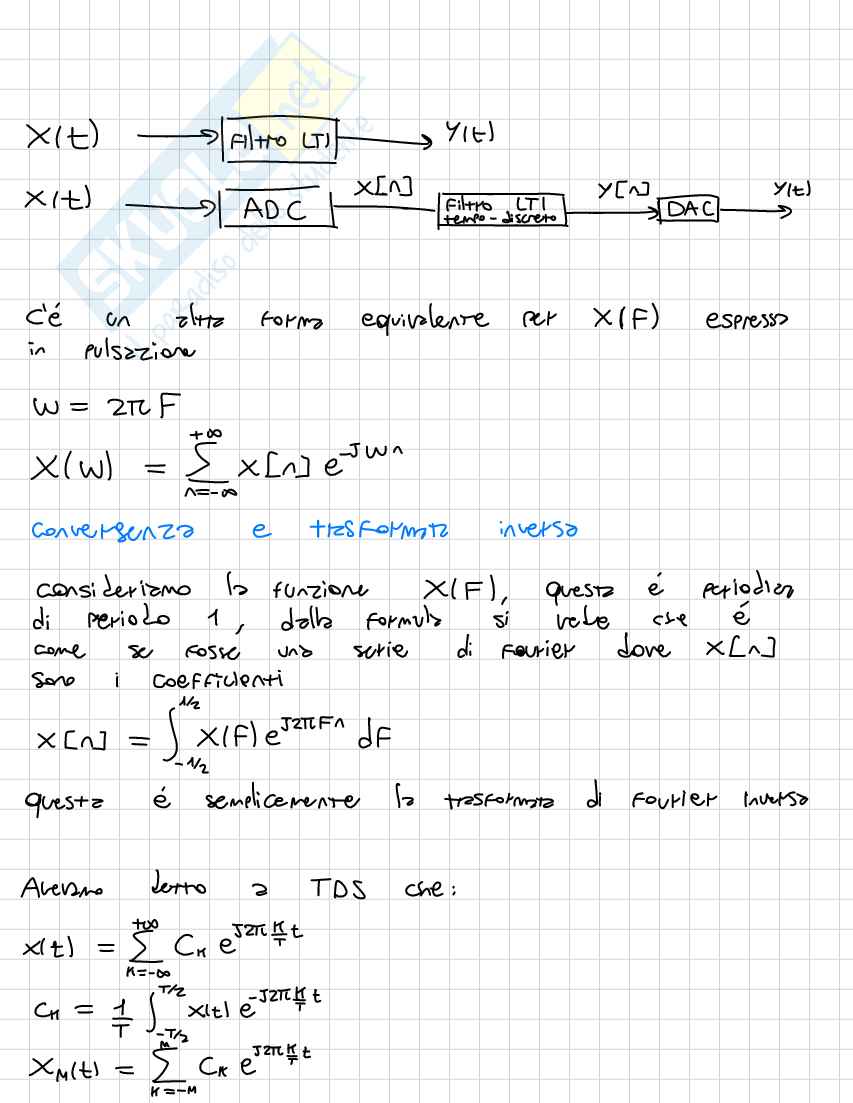 X(t) → Filtro LTI → Y(t)
X(t) → ADC X[n] Filtro LTI tempo-discreto Y[n] → DAC → Y(t)
SKUOLA.net
c'é un altra forma equivalente per X(F) espressa
in pulsazione
w = 2π F
X(w) = ∑_{n=-∞}^{+∞} x[n] e^{-Jwn}
convergenza e trasformata inversa
consideriamo la funzione X(F), questa é periodica
di periodo 1, dalla formula si vede che é
come se fosse una serie di Fourier dove x[n]
sono i coefficienti
x[n] = ∫_{-1/2}^{1/2} X(F) e^{J2πFn} dF
questa é semplicemente la trasformata di Fourier inversa
Avevamo detto a TDS che:
x(t) = ∑_{k=-∞}^{+∞} C_k e^{J2π \frac{k}{T} t}
C_k = \frac{1}{T} ∫_{-T/2}^{T/2} x(t) e^{-J2π \frac{k}{T} t}
X_M(t) = ∑_{k=-M}^{M} C_k e^{J2π \frac{k}{T} t}